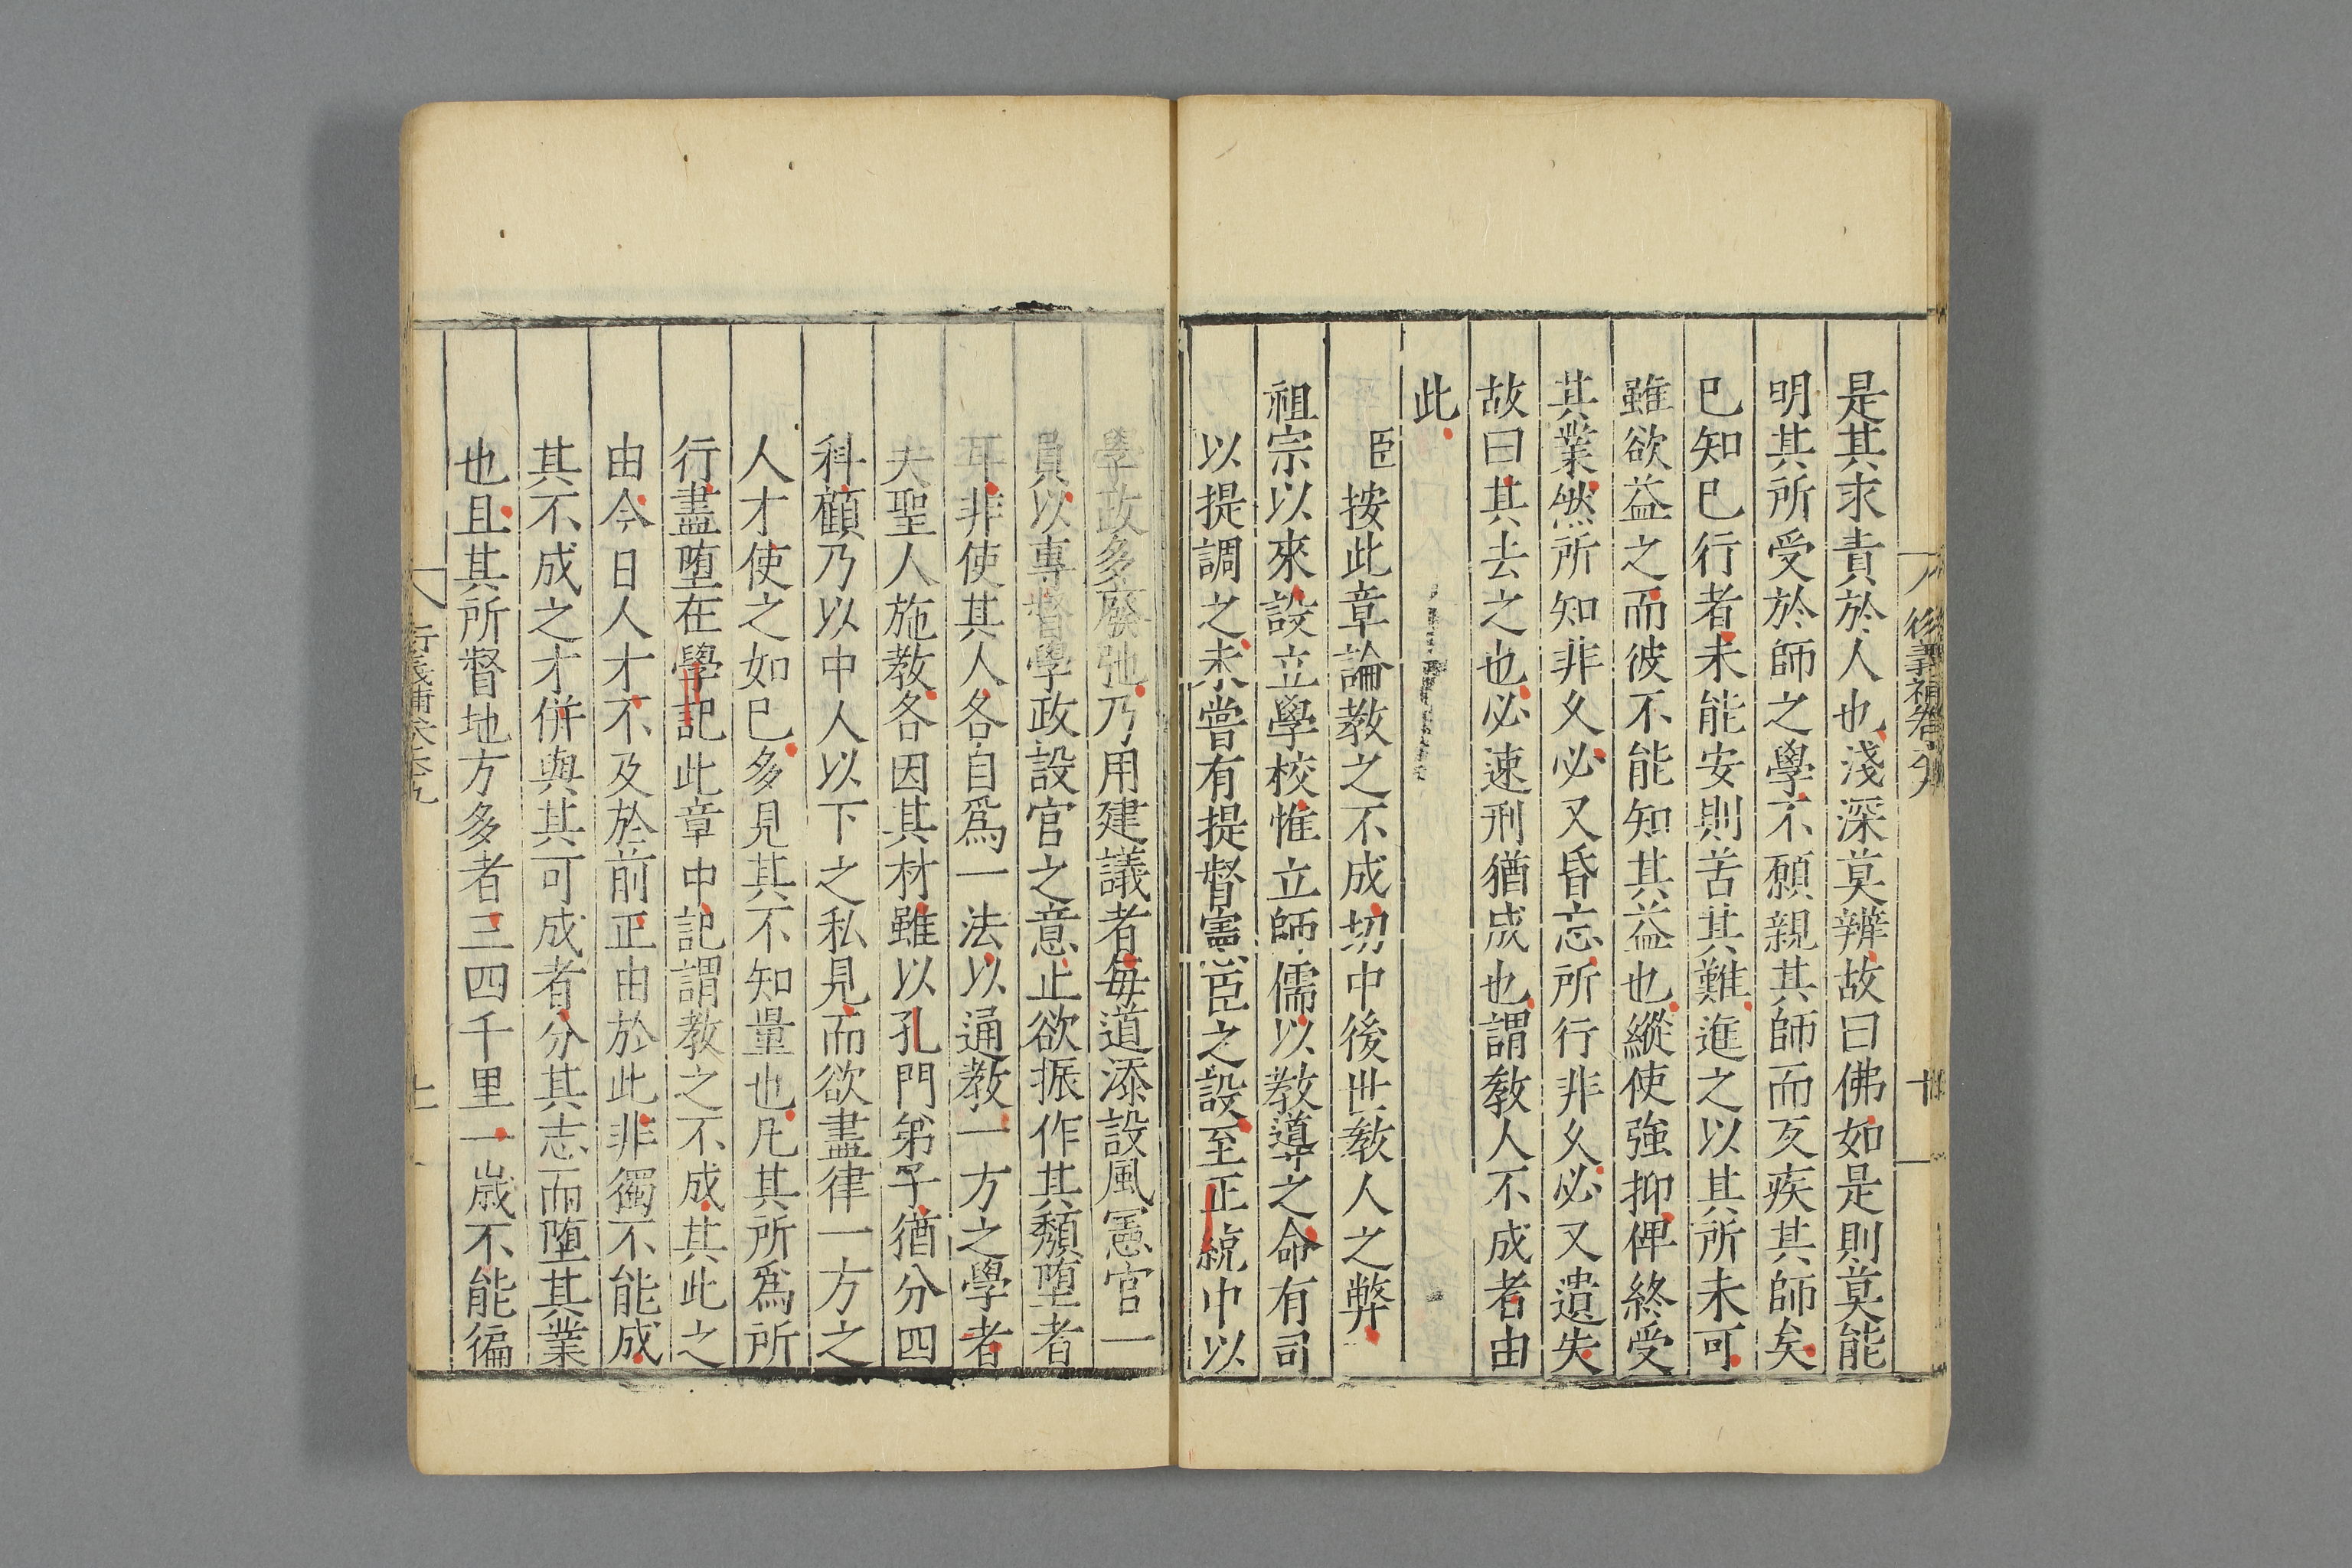 是其求責於人也淺深莫辨故曰佛如是則莫能
明其所受於師之學不願親其師而亥疾其師矣
已知已行者未能安則苦其難進之以其所未可
雖欲益之而彼不能知其益也縱使強抑俾終受
其業然所知非久必又昏忘所行非久必又遺失
故曰其去之也必速刑猶成也謂教人不成者由
此
臣按此章論教之不成切中後世教人之弊
祖宗以來設立學校惟立師儒以教導之命有司
以提調之未嘗有提督憲臣之設至正統中以
學政多廢弛乃用建議者每道添設風憲官一
員以專督學政設官之意止欲振作其頹堕者
耳非使其人各自爲一法以通教一方之學者
夫聖人施教各因其材雖以孔門弟子猶分四
科顧乃以中人以下之私見而欲盡律一方之
人才使之如已多見其不知量也凡其所爲所
行盡堕在學記此章中記謂教之不成其此之
由今日人才不及於前正由於此非獨不能成
其不成之才併與其可成者分其志而墮其業
也且其所督地方多者三四千里一歲不能徧